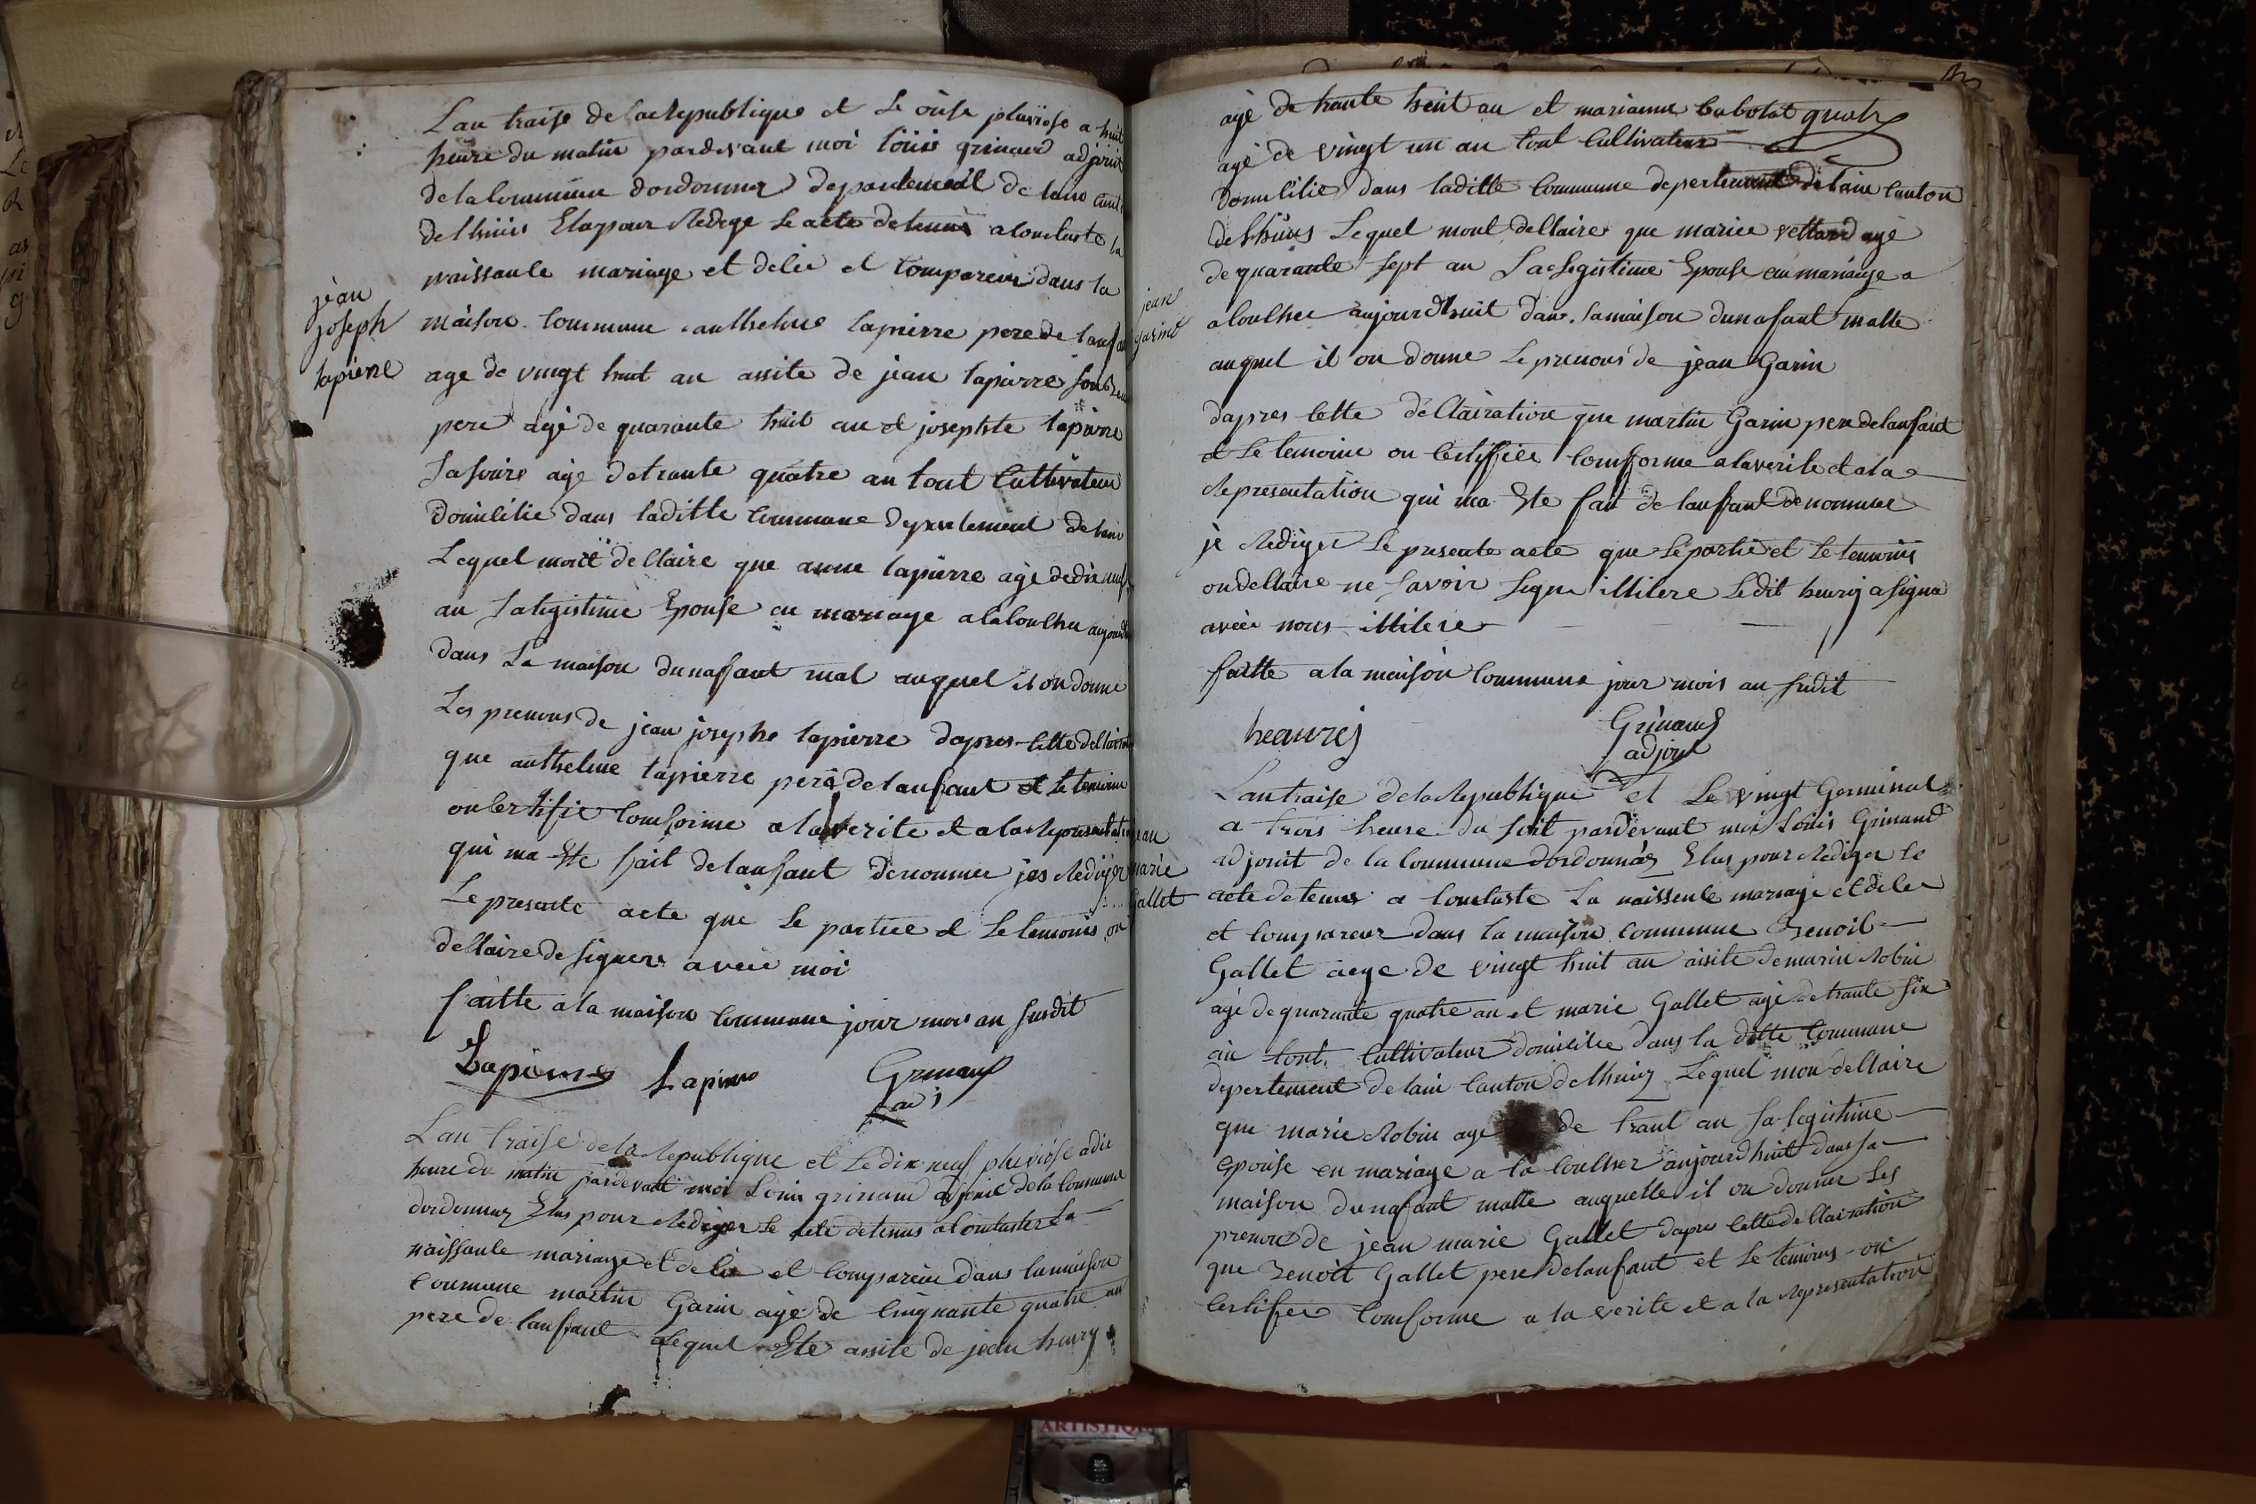 Lan traise de la Republique et le onse pluviose a huit
heure du matin pardevant moi loüis grinand adjoint
de la Commune dordonnaz departement de lain cant
de lhuiis Elu pour Redige le acte detenüs a Constaste la
naissante mariage et delie et Compareue dans la
jean
joseph
lapierre
maison Commune anthelme lapierre pere de lanfan
age de vingt huit an assite de jean lapierre son
pere agé de quarante huit an et josephte lapierre
sa soeure agé de trante quatre an tout Cultivateur
Domicilié dans laditte Commune departement de lain
Lequel moit dellaire que anne lapierre agé de dix neuf
an sa legistime Epouse en mariage a lacoulhée aujourd
dans sa maison dunaffant mal auquel il on donne
Les prenons de jean josephe lapierre dapres cette dellair
que anthelme lapierre pere de lanfant et le temoins
on Certifie Comforme a la verite et a la Representation
qui ma Ete fait de lanfant denommee jes Rediger
Le presente acte que le partiee et le temoins on
dellaire de signere avéie moi
faitte a la maison Commune jour mois an susdit
Lapierre Lapierre Grinand
adj
Lan traise de la Republique et Le dix neuf pluviose a dix
heure du matin pardevant moi Louis grinand adjoint de la Commune
dordonnaz Elus pour Rediger le acte detenus a Contaster La
naissante mariage et de lie et Compareue dans la maison
Commune martin Garin agé de Cinquante quatre an
pere de lanfant Lequel Ete assité de jean henry
agé de trante huit an et marianne
agé de vingt un an tout Cultivateur
Domicilié dans laditte Commune departement de lain Canton
de lhüiis Lequel mont dellaire que mariee vettard agé
de quarante sept an sa legistime Epouse en mariage a
jean
garin
aloulhée aujourdhuit dans sa maison dunafant malle
auquel il on donne le prenons de jean Garin
dapres cette déllairation que martin Garin pere de lanfant
et le temoins on Certiffiée Comfforme a la verite et a la
Representation qui ma Ete fait de lanffant denommee
je Rediger Le presente acte que le partie et le temoins
on dellaire ne savoir signe illitere Ledit henrij a signa
avéie nous illitere
faitte a la maison Commune jour mois an sudit
heanrij Grinand
adjoin
Lan traise de la Republique et Le vingt Germinal
a trois heure du soit pardevant moi Loüis Grinand
adjoint de la Commune dordonnaz Elus pour Rediger le
jean
marie
Gallet
acte detenus a Contaste La naissente mariage et de lie
et Compareue dans la maison Commune Benoit
Gallet aege de vingt huit an aisite de marin Robin
agé de quarante quatre an et marie Gallet agé de trante six
an tout Cultivateur domicilie dans la ditte Commune
departement de lain Canton de lhuiz Lequel mon dellaire
que marie Robin age de trant an sa legistime
epouse en mariage a la Coulhee aujourdhuit dans sa
maison dunafant malle auquelle il on donner Les
prenons de jean marie Gallet dapres cette dellairation
que Benoit Gallet pere de lanfant et le temoins on
Certifier Comforme a la verite et a la Representation